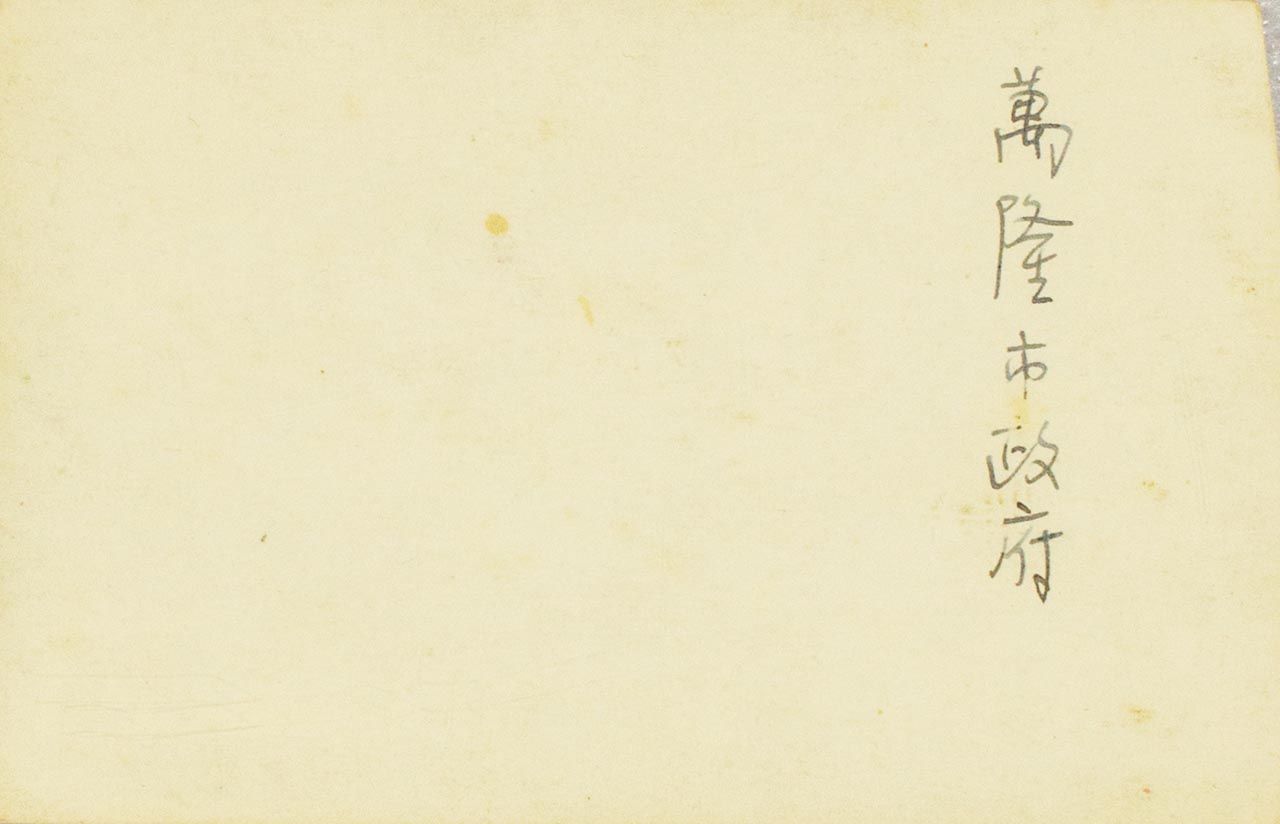 萬隆市政府